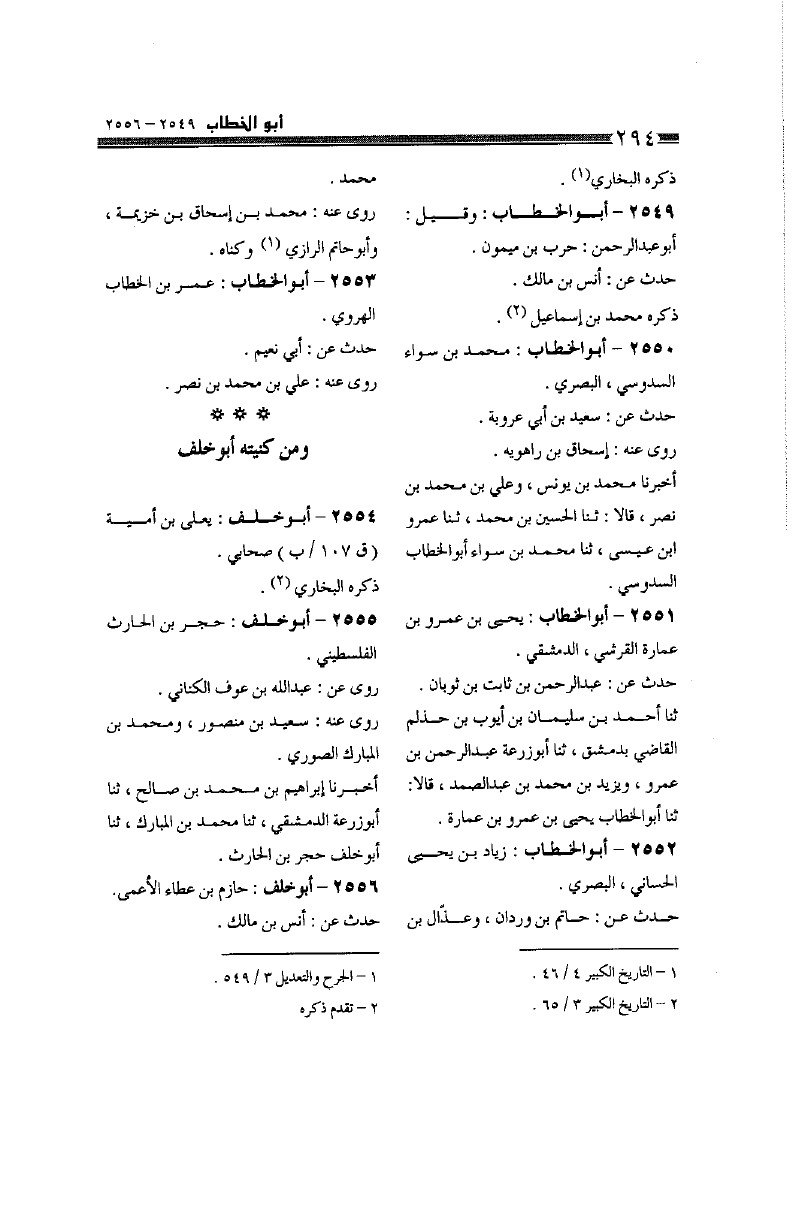 أبو الخطاب ٢٥٤٩ – ٢٥٥٦
٢٩٤
ذكره البخاري(١) .
٢٥٤٩ – أبوالخطاب : وقيل :
أبوعبدالرحمن : حرب بن ميمون .
حدث عن : أنس بن مالك .
ذكره محمد بن إسماعيل (٢) .
٢٥٥٠ – أبوالخطاب : محمد بن سواء
السدوسي ، البصري .
حدث عن : سعيد بن أبي عروبة .
روى عنه : إسحاق بن راهويه .
أخبرنا محمد بن يونس ، وعلي بن محمد بن
نصر ، قالا : ثنا الحسين بن محمد ، ثنا عمرو
ابن عيسى ، ثنا محمد بن سواء أبوالخطاب
السدوسي .
٢٥٥١ – أبوالخطاب : يحيى بن عمرو بن
عمارة القرشي ، الدمشقي .
حدث عن : عبدالرحمن بن ثابت بن ثوبان .
ثنا أحمد بن سليمان بن أيوب بن حذلم
القاضي بدمشق ، ثنا أبوزرعة عبدالرحمن بن
عمرو ، ويزيد بن محمد بن عبدالصمد ، قالا:
ثنا أبوالخطاب يحيى بن عمرو بن عمارة .
٢٥٥٢ – أبوالخطاب : زياد بن يحيى
الحساني ، البصري .
حدث عن : حاتم بن وردان ، وعذّال بن
١ – التاريخ الكبير ٤ / ٤٦ .
٢ – التاريخ الكبير ٣ / ٦٥ .
محمد .
روى عنه : محمد بن إسحاق بن خزيمة ،
وأبوحاتم الرازي (١) وكناه .
٢٥٥٣ – أبوالخطاب : عمر بن الخطاب
الهروي .
حدث عن : أبي نعيم .
روى عنه : علي بن محمد بن نصر .
* * *
ومن كنيته أبوخلف
٢٥٥٤ – أبوخلف : يعلى بن أمية
( ق ١٠٧ / ب ) صحابي .
ذكره البخاري (٢) .
٢٥٥٥ – أبوخلف : حجر بن الحارث
الفلسطيني .
روى عن : عبدالله بن عوف الكناني .
روى عنه : سعيد بن منصور ، ومحمد بن
المبارك الصوري .
أخبرنا إبراهيم بن محمد بن صالح ، ثنا
أبوزرعة الدمشقي ، ثنا محمد بن المبارك ، ثنا
أبوخلف حجر بن الحارث .
٢٥٥٦ – أبوخلف : حازم بن عطاء الأعمى.
حدث عن : أنس بن مالك .
١ – الجرح والتعديل ٣ / ٥٤٩ .
٢ – تقدم ذكره